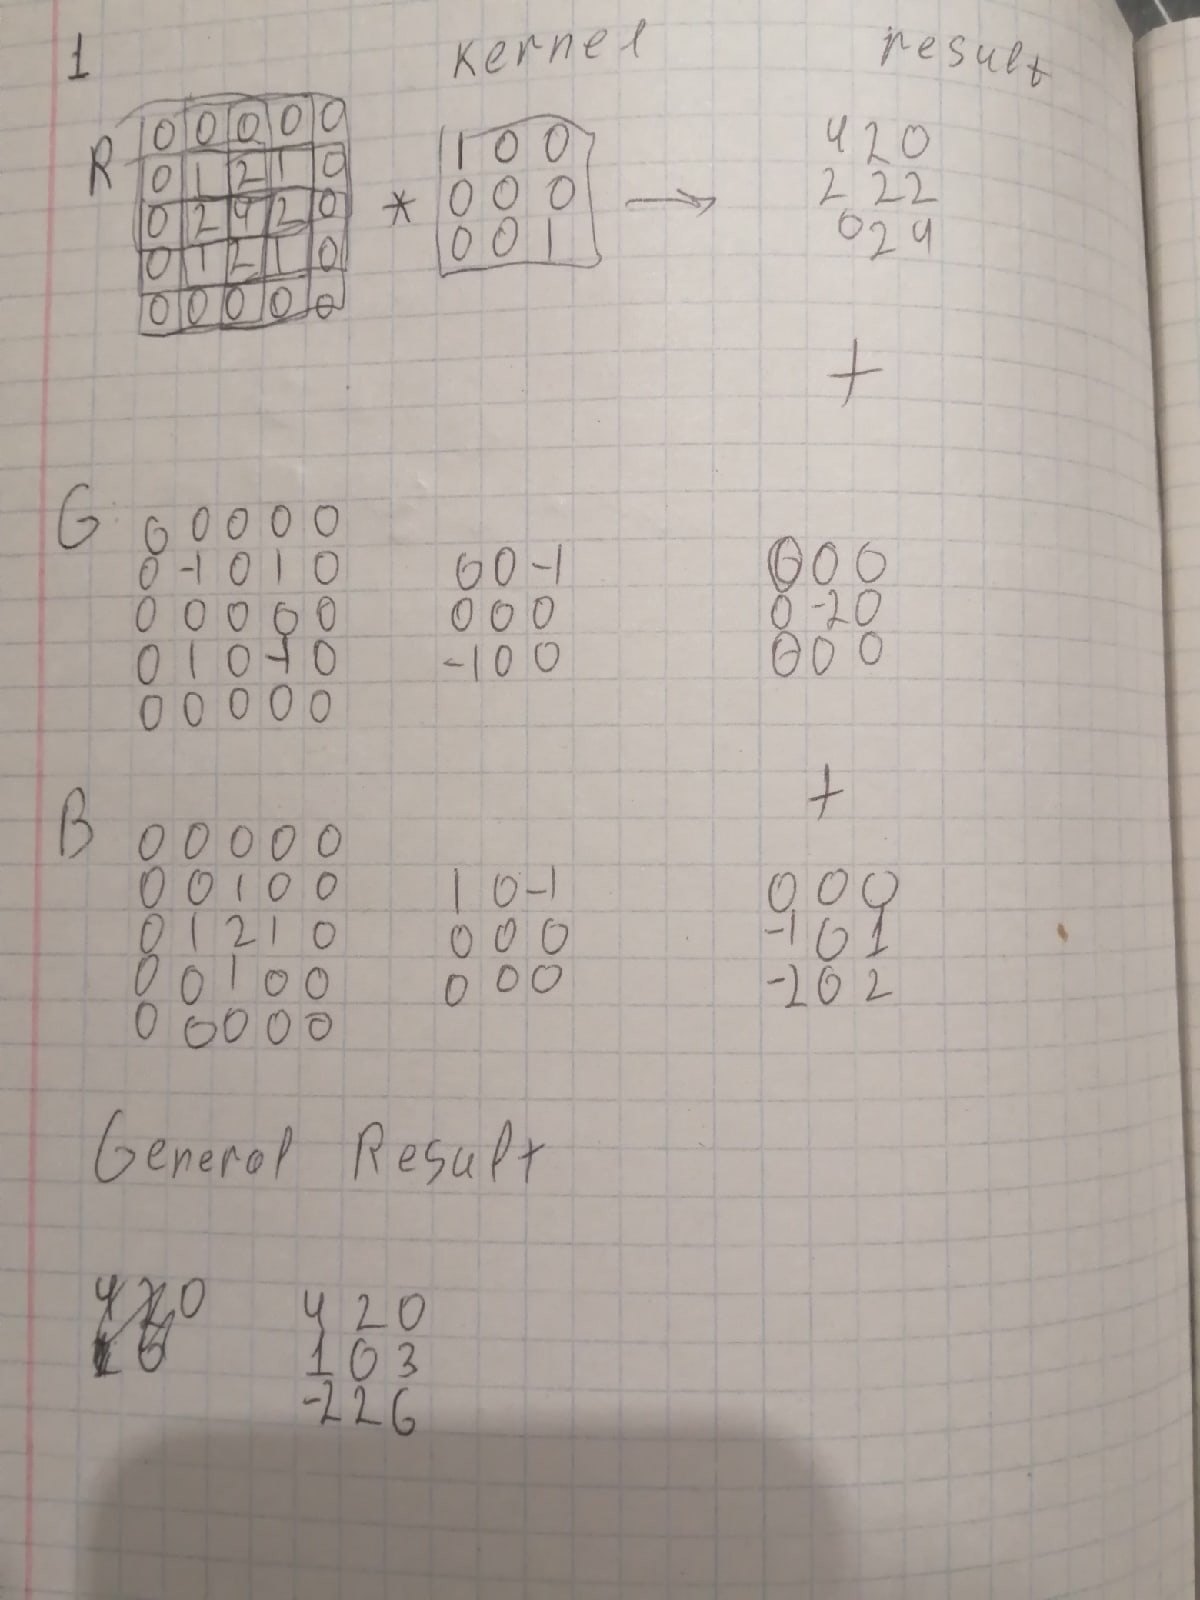 1 Kernel result
R
0 0 0 0 0
0 1 2 1 0
0 2 4 2 0
0 1 2 1 0
0 0 0 0 0
*
1 0 0
0 0 0
0 0 1
→
4 2 0
2 2 2
0 2 4
+
G
0 0 0 0 0
0 -1 0 1 0
0 0 0 0 0
0 1 0 -1 0
0 0 0 0 0
0 0 -1
0 0 0
-1 0 0
0 0 0
0 -2 0
0 0 0
+
B
0 0 0 0 0
0 0 1 0 0
0 1 2 1 0
0 0 1 0 0
0 0 0 0 0
1 0 -1
0 0 0
0 0 0
0 0 0
-1 0 1
-2 0 2
General Result
4 2 0
1 0 3
-2 2 6